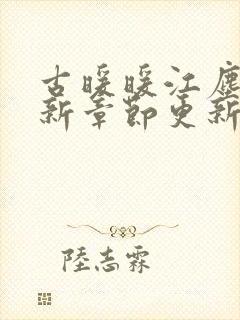 古暖暖江塵
新章節更新
陸志霖